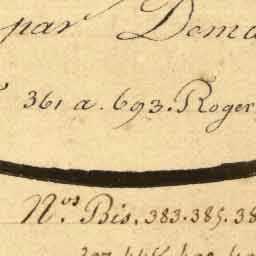 par Dema
361 a. 693. Roger
N.os Bis. 383. 385. 38